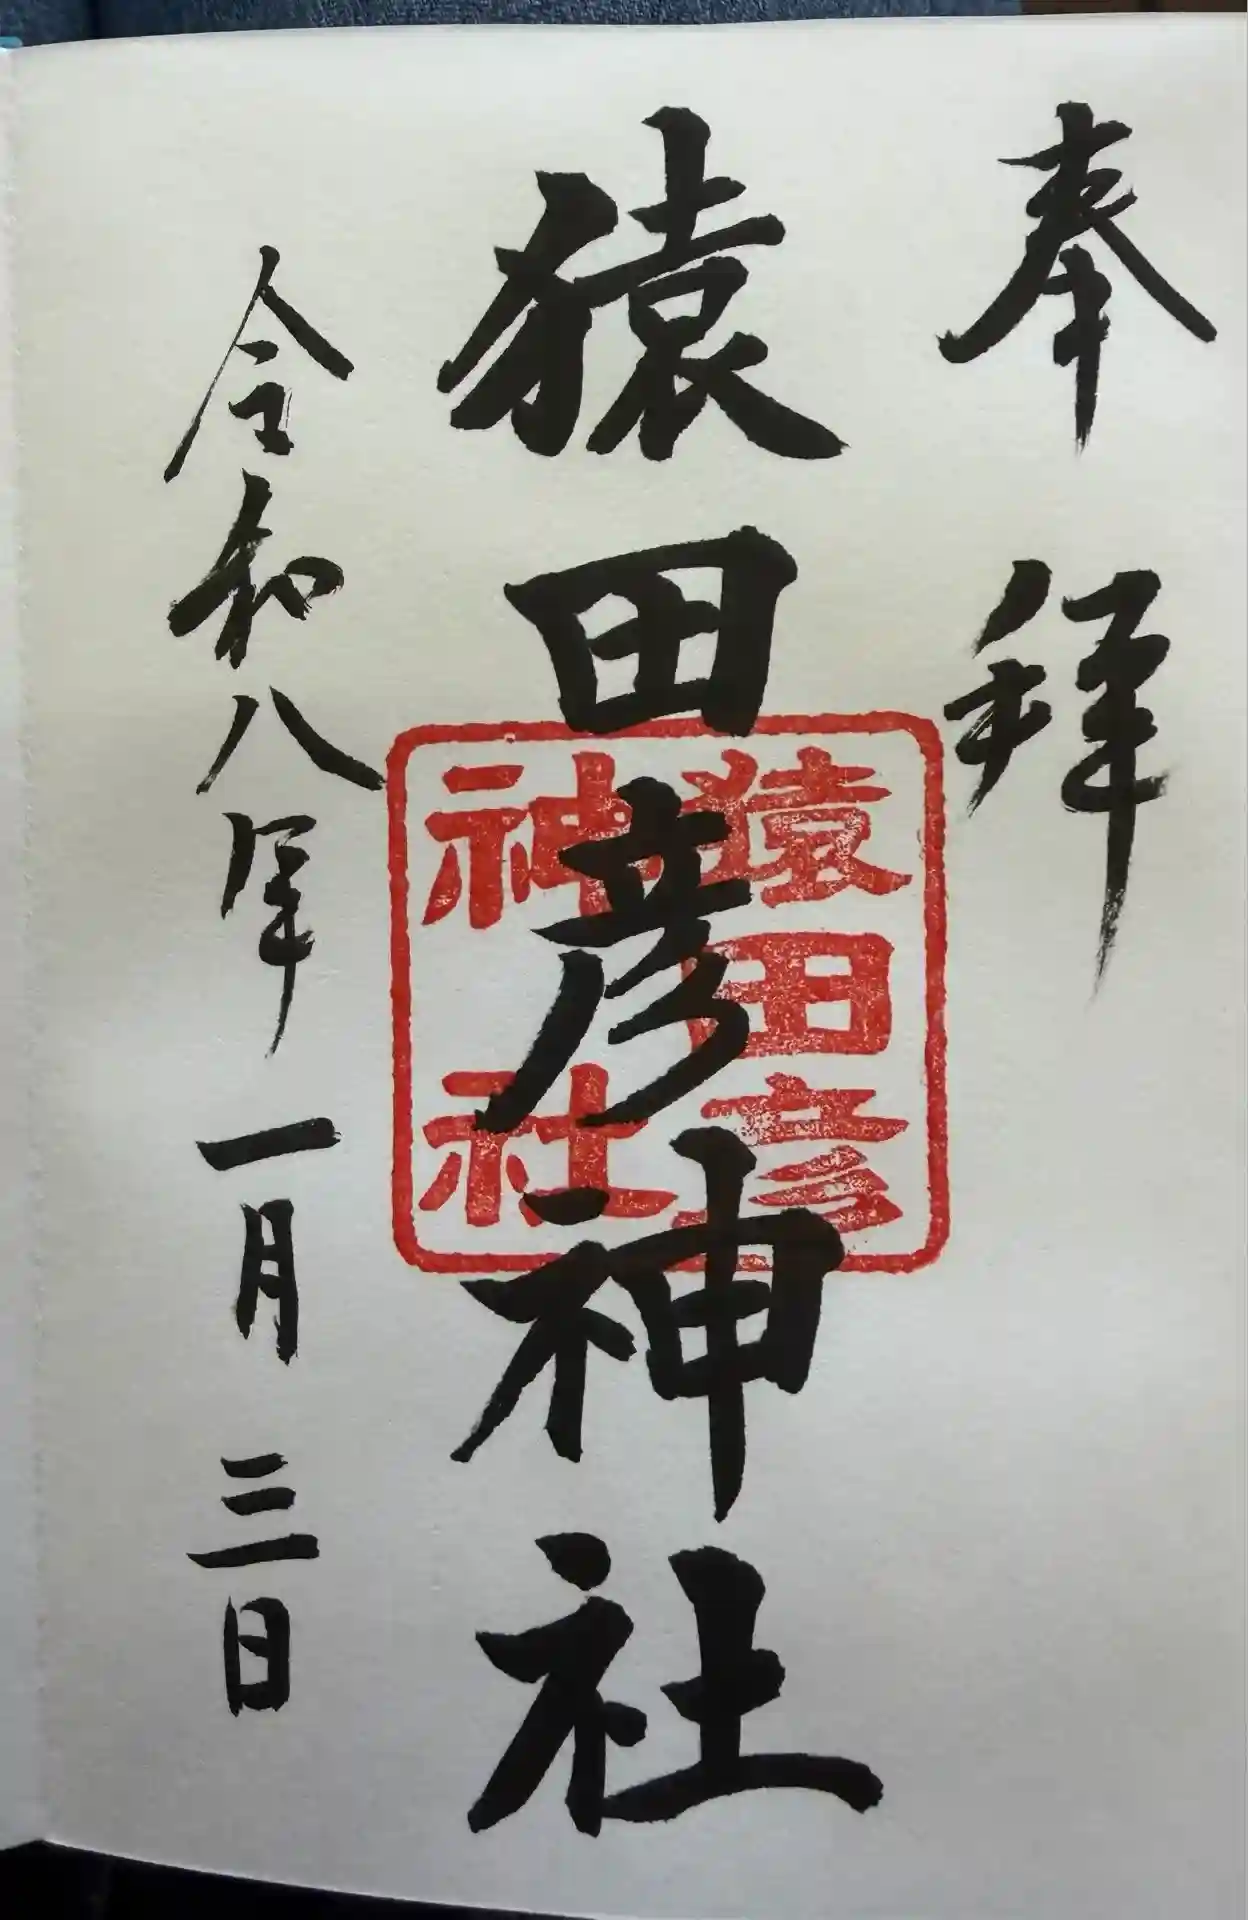 奉拜
猿田彦神社
猿田彦
神社
令和八年一月三日